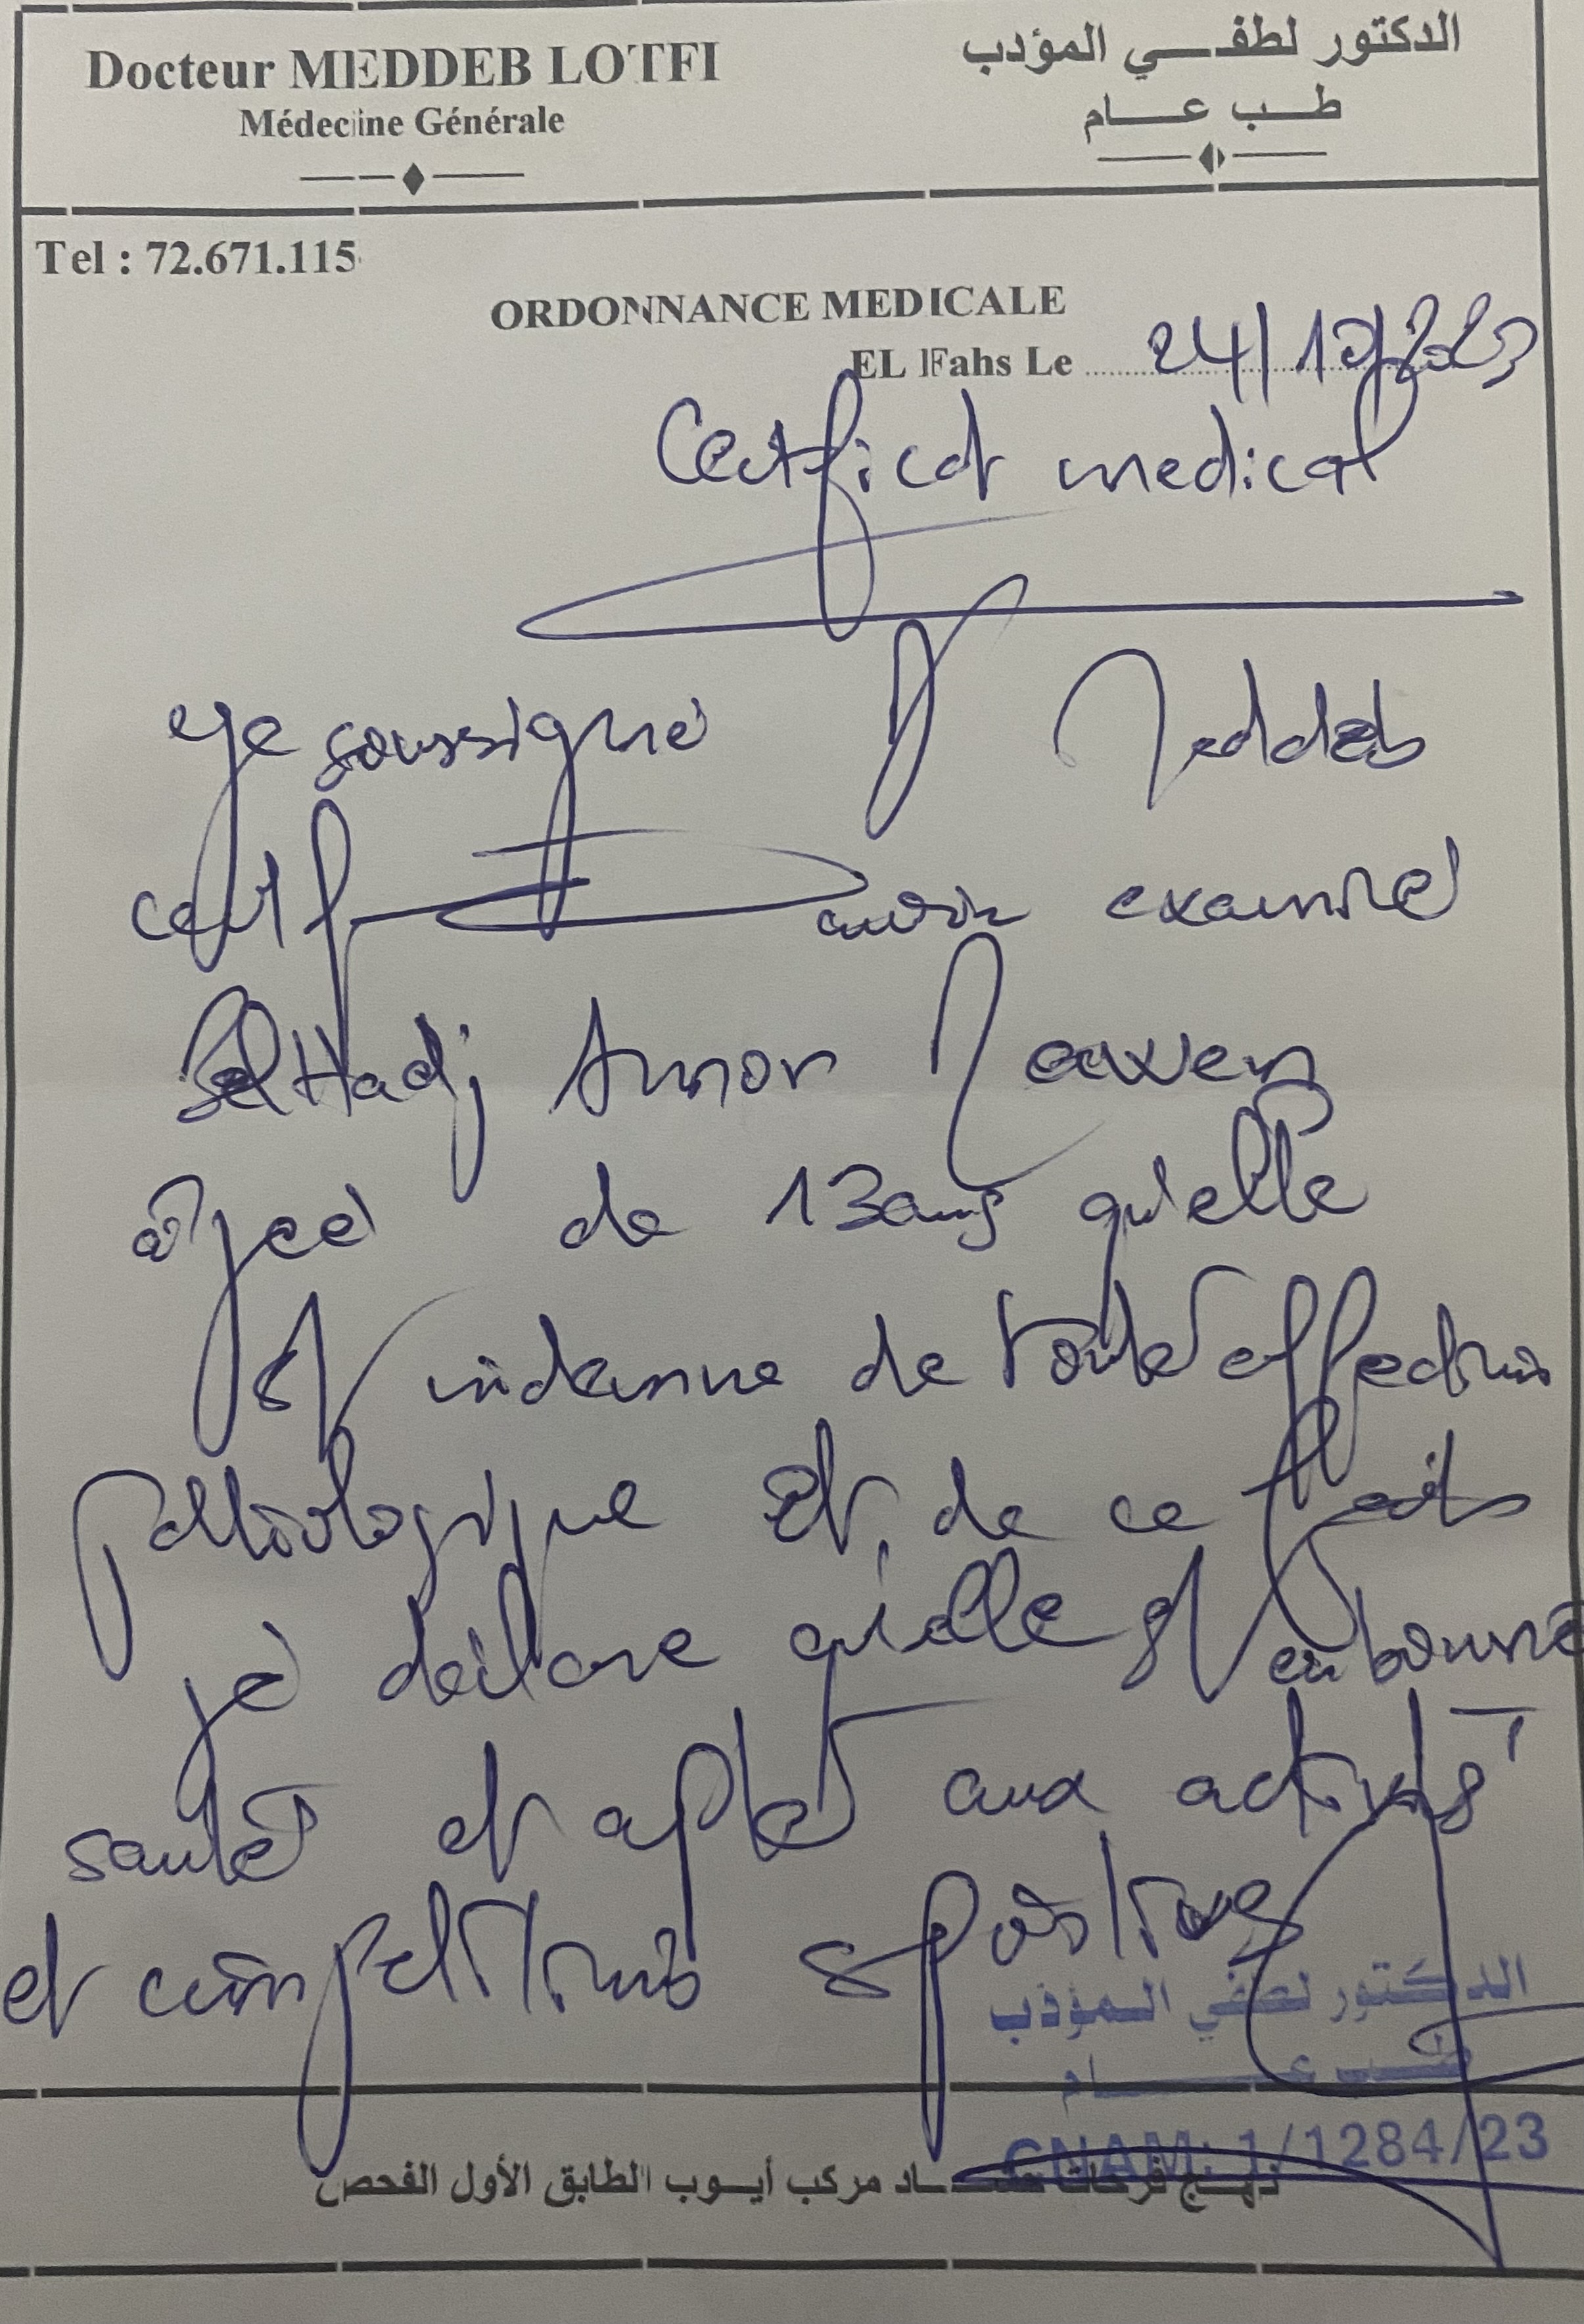 Docteur MEDDEB LOTFI
Médecine Générale
الدكتور لطفي المؤدب
طب عام
Tel : 72.671.115
ORDONNANCE MEDICALE
EL Fahs Le 24/10/2023
Certificat medical
Je soussigné Dr Meddeb
certifie avoir examiné
BelHadj Amor
âgée de 13 ans qu'elle
est indemne de toute affection
pathologique et de ce fait
je déclare qu'elle est en bonne
santé et apte aux activités
et compétitions sportives
الدكتور لطفي المؤدب
طب عام
CNAM: 1/1284/23
نهج فرحات حشاد مركب أيوب الطابق الأول الفحص